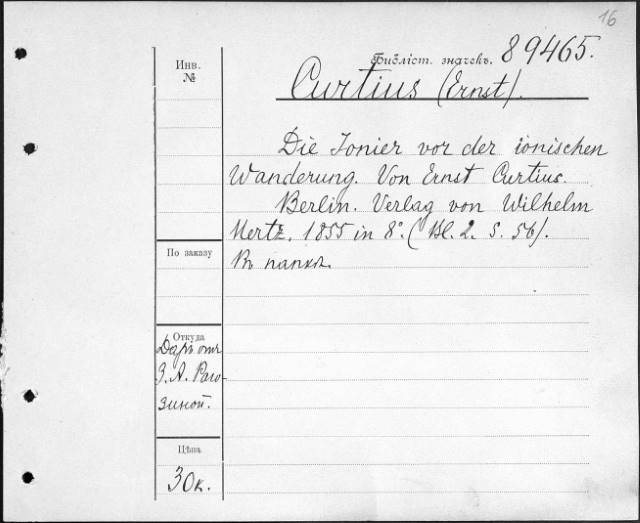 16
Библіст. значекъ. 89465.
Инв.
№
Curtius (Ernst).
Die Ionier vor der ionischen
Wanderung. Von Ernst Curtius.
Berlin. Verlag von Wilhelm
Hertz. 1855 in 8°. (Bl. 2. S. 56).
Въ папкѣ.
По заказу
Откуда
Даръ отъ
З. А. Раго-
зиной.
Цѣна
30 к.